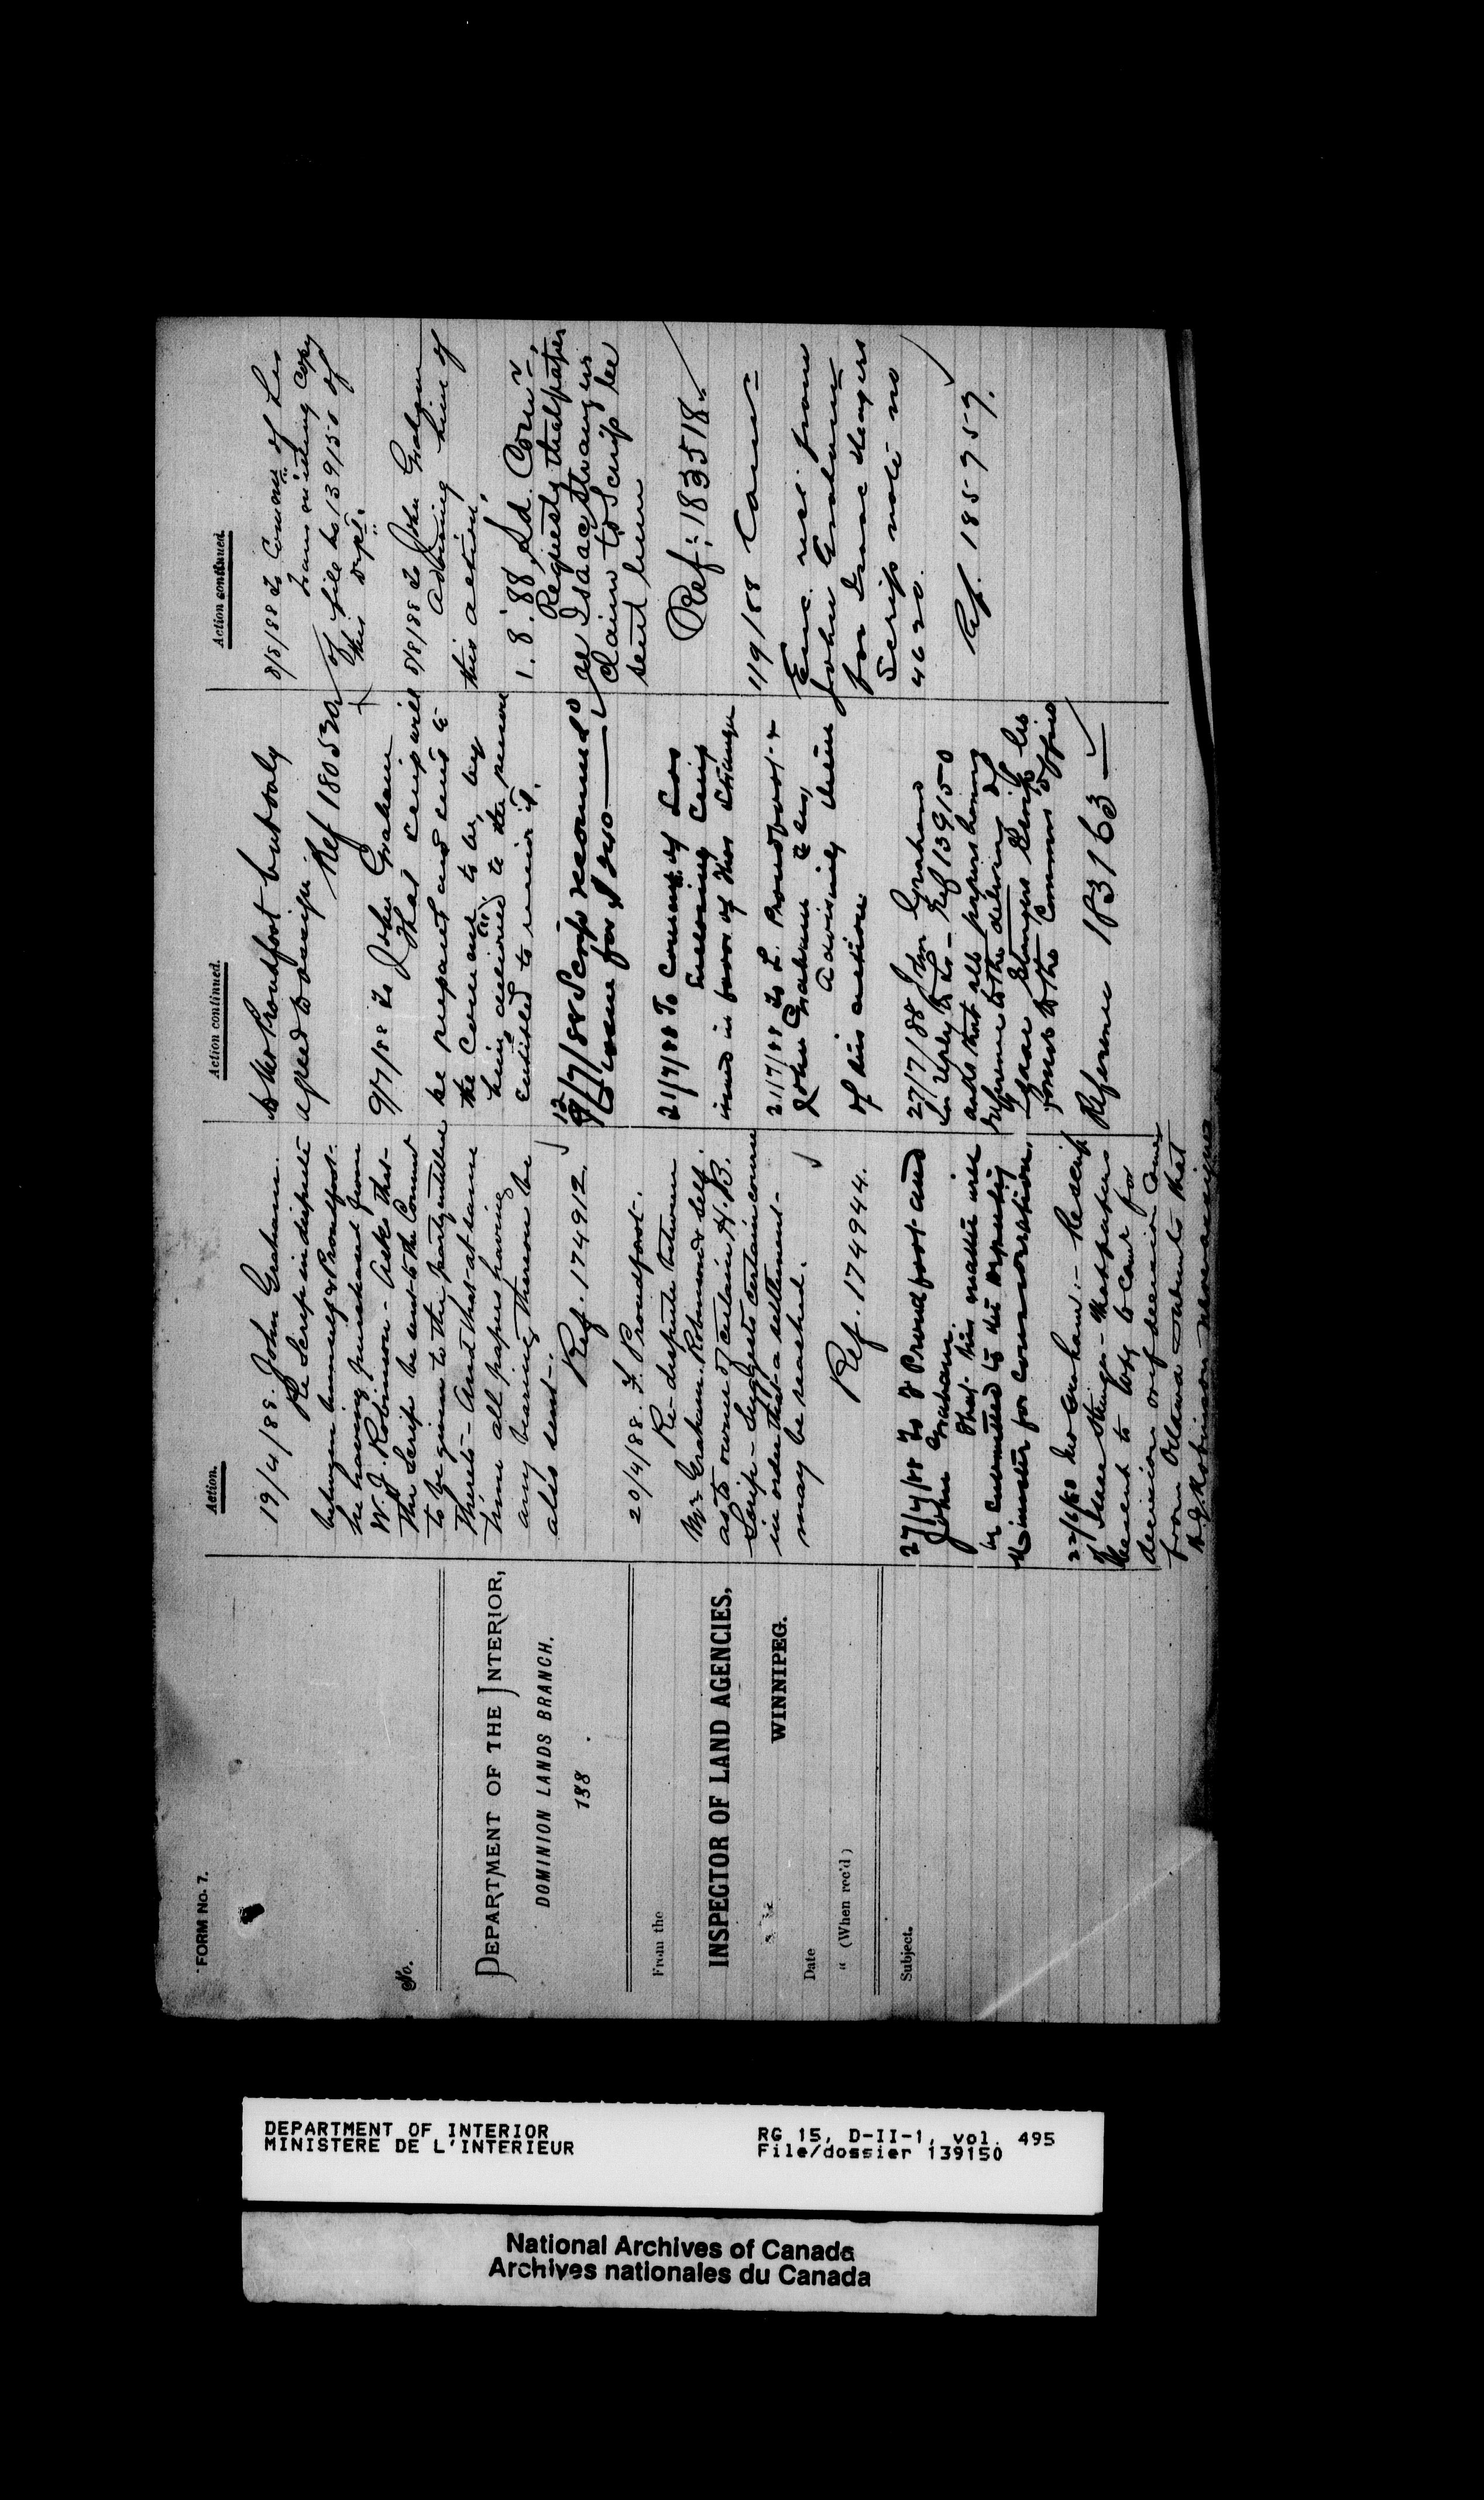 FORM No. 7.
No.
DEPARTMENT OF THE INTERIOR,
DOMINION LANDS BRANCH.
188 .
From the
INSPECTOR OF LAND AGENCIES,
WINNIPEG.
Date
" (When rec'd)
Subject.
Action.
19/4/88. John Graham.
Re Scrip in dispute
between himself & Proudfoot.
he having purchased from
W. J. Robinson - Asks that
the Scrip be sent to the Commr
to be given to the party entitled
thereto - And that at same
time all papers having
any bearing thereon be
also sent -.
Ref. 174912.
20/4/88. F. Proudfoot.
Re - dispute between
Mr Graham. Robinson & self.
as to owner of certain H.B.
Scrip - Suggests certain course
in order that a settlement
may be reached.
Ref. 174944.
27/4/88 To F Proudfoot and
John Graham.
That this matter will
be submitted to the Deputy
Minister for consideration.
22/6/88 Jno Graham. - Re Scrip
of Isaac Stranger - that papers
be sent to Wpg to Comr for
decision or if decision comes
from Ottawa submits that
W. J. Robinson
Action continued.
to Mr Proudfoot but only
agreed to assign
Ref 180530
9/7/88 To John Graham
That scrip will
be prepared and sent to
the Commr to be by
him delivered to the person
entitled to receive it.
12/7/88 Scrip recommd
Issue for $240
21/7/88 To Commr of Lds
Enclosing Scrip
issued in favor of Isaac Stranger
21/7/88 To F. Proudfoot &
John Graham
Advising them
of this action.
27/7/88 Jno Graham
In reply to Ls - Ref 139150
asks that all papers having
reference to the delivery of
Isaac Strangers Scrip be
forwd to the Commrs Office
Reference 183163
Action continued.
8/8/88 To Commr of Lds
transmitting copy
of file No 139150 of
this Dept.
8/8/88 To John Graham
advising him of
this action.
1. 8. 88 Ld. Comr,
Requests that papers
re Isaac Strangers
claim to Scrip be
sent him
Ref: 183518.
1/9/88 Comr
Enc. rect. from
John Graham
for Isaac Strangers
Scrip note no
4620.
Ref. 185959.
DEPARTMENT OF INTERIOR
MINISTERE DE L'INTERIEUR
RG 15, D-II-1, vol. 495
File/dossier 139150
National Archives of Canada
Archives nationales du Canada